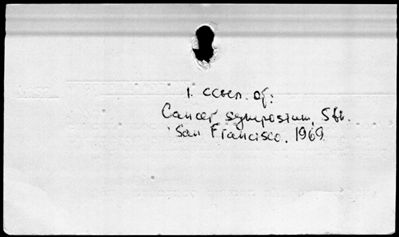 1. ссыл. of:
Cancer symposium, 5th.
San Francisco. 1969